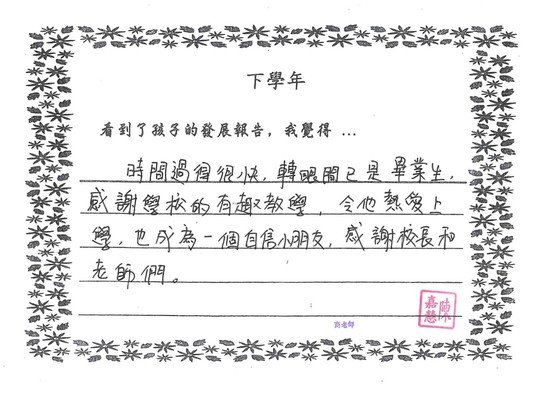 下學年
看到了孩子的發展報告，我覺得 ...
時間過得很快，轉眼間已是畢業生，
感謝學校的有趣教學，令他熱愛上
學，也成為一個自信小朋友，感謝校長和
老師們。
陳
嘉慧